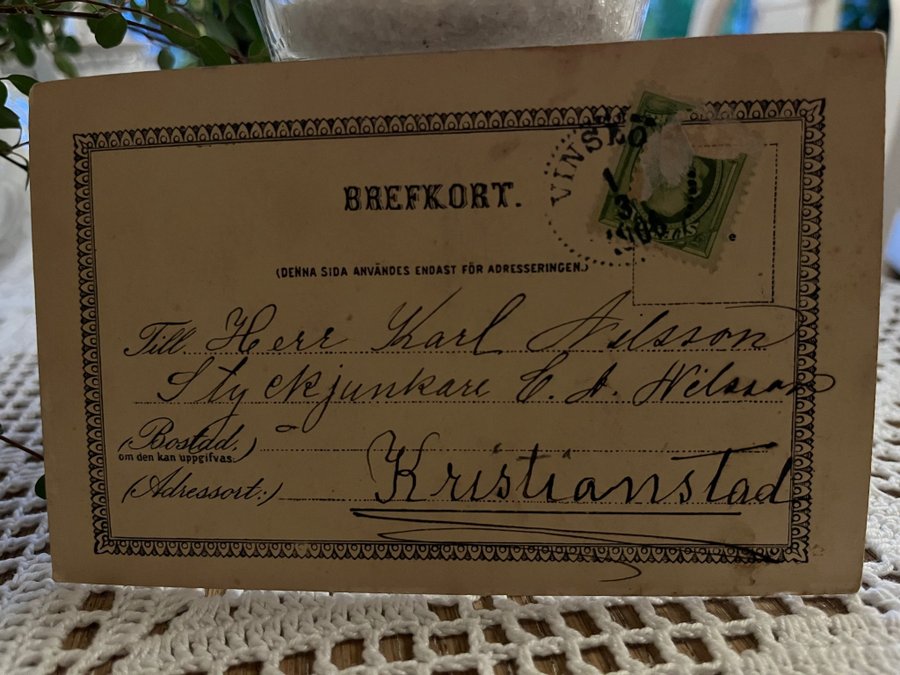 BREFKORT.
VINSLÖ
1
3
(DENNA SIDA ANVÄNDES ENDAST FÖR ADRESSERINGEN.)
Till Herr Karl Nilsson
Styckjunkare C. A. Nilsson
(Bostad,)
om den kan uppgifvas:
(Adressort:) Kristianstad